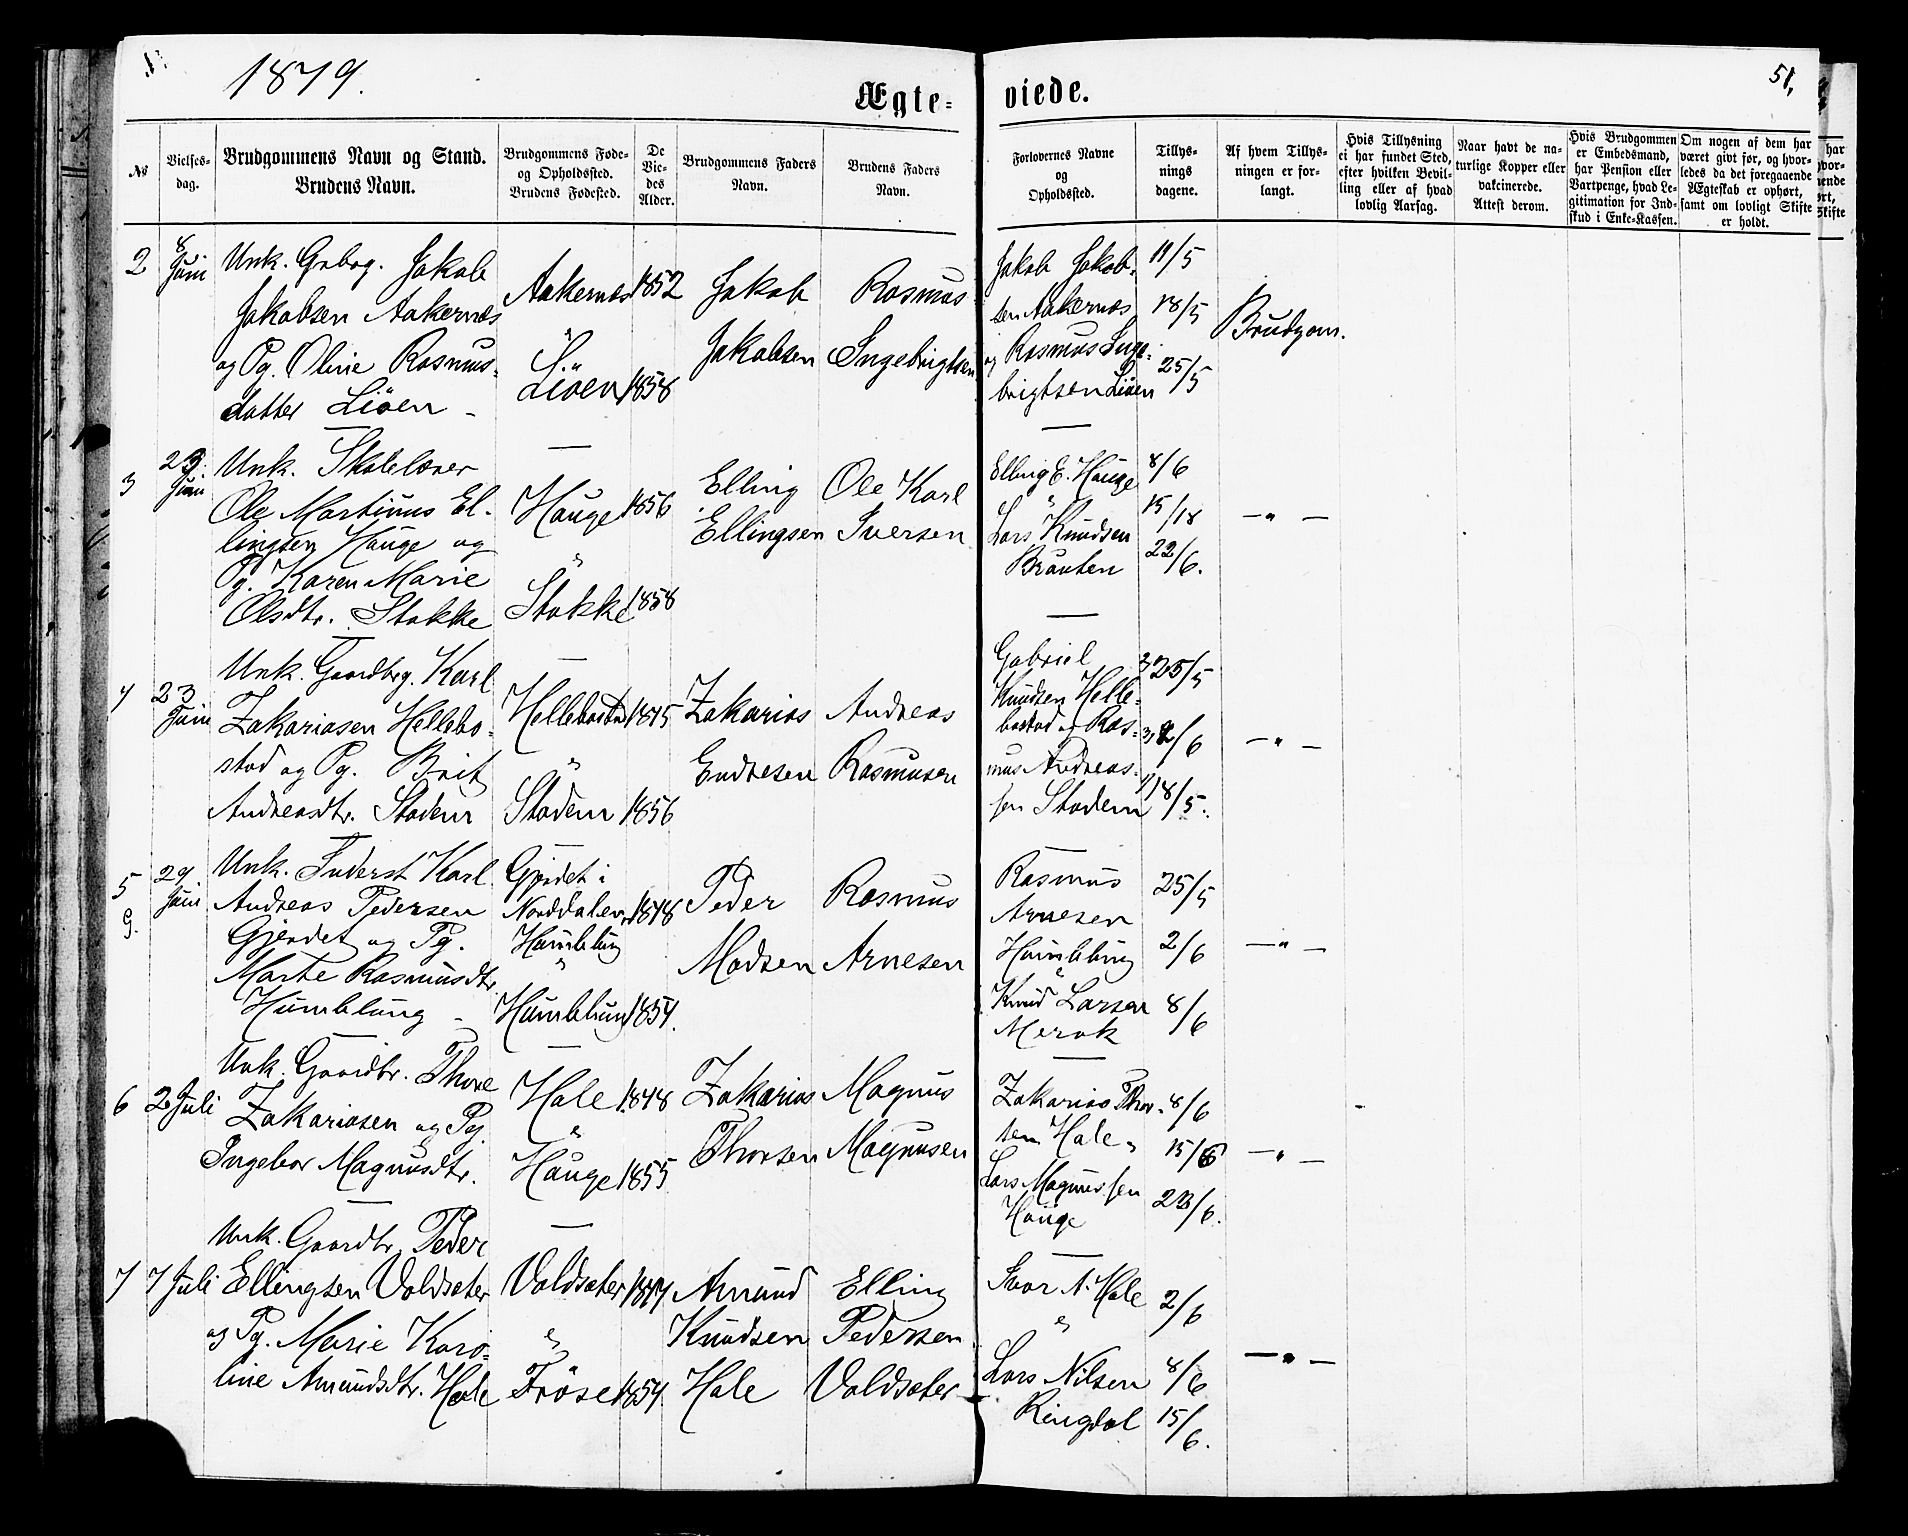 1879.
51,
Ægte-
viede.
No
Vielses-
dag.
Brudgommens Navn og Stand.
Brudens Navn.
Brudgommens Føde-
og Opholdssted.
Brudens Fødested.
De
Vie-
des
Alder.
Brudgommens Faders
Navn.
Brudens Faders
Navn.
Forlovernes Navne
og
Opholdssted.
Tillys-
nings
dagene.
Af hvem Tillys-
ningen er for-
langt.
Hvis Tillysning
ei har fundet Sted,
efter hvilken Bevil-
ling eller af hvad
lovlig Aarsag.
Naar havt de na-
turlige Kopper eller
vakcinerede.
Attest derom.
Hvis Brudgommen
er Embedsmand,
har Pension eller
Vartpenge, hvad Le-
gitimation for Ind-
skud i Enke-Kassen.
Om nogen af dem har
været givt før, og hvor-
ledes da det foregaaende
Ægteskab er ophørt,
samt om lovligt Skifte
er holdt.
2
8
Juni
Unk. Grbrg. Jakob
Jakobsen Aakernæs
og Pg. Oline Rasmus-
datter Liøen -
Aakernæs
"
Liøen
1852
1858
Jakob
Jakobsen
Rasmus
Ingebrigtsen
Jakob Jakob-
sen Aakernæs
og Rasmus Inge-
brigtsen Liøen
11/5
18/5
25/5
Brudgom.
3
23
Juni
Unk. Skolelærer
Ole Martinus El-
lingsen Hauge og
Pg. Karen Marie
Olsdtr. Stokke
Hauge
"
Stokke
1856
1858
Elling
Ellingsen
Ole Karl
Iversen
Elling E. Hauge
"
Lars Knudsen
Brauten
8/6
15/18
22/6.
— " —
4
23
Juni
Unk. Gaardbrg. Karl
Zakariasen Hellebo-
stad og Pg. Brit
Andreasdtr. Stadem
Hellebostad
"
Stadem
1845
1856
Zakarias
Endresen
Andreas
Rasmusen
Gabriel
Knudsen Helle-
bostad og Ras-
mus Andreas-
sen Stadem
25/5
/6
18/5.
— " —
5
G.
29
Juni
Unk. Inderst Karl
Andreas Pedersen
Gjerdet og Pg.
Marte Rasmusdtr.
Humblung -
Gjerdet i
Norddalen
Humblung
"
Humblung
1848
1854.
Peder
Madsen
Rasmus
Arnesen
Rasmus
Arnesen
Humblung
"
Knud Larsen
Merok
25/5
2/6
8/6
— " —
6
2 Juli
Unk. Gaardbr. Thore
Zakariasen og Pg.
Ingebor Magnusdtr.
Hole
"
Hauge
1848
1855
Zakarias
Thorsen
Magnus
Magnusen
Zakarias Thor-
sen Hole "
Lars Magnussen
Hauge
8/6
15/6
22/6.
— " —
7
7 Juli
Unk. Gaardbr. Peder
Ellingsen Voldsæter
og Pg. Marie Karo-
line Amundsdtr. Hole
Voldsæter
"
Frøse
1854
Amund
Knudsen
Hole
Elling
Pedersen
Voldsæter
Ivar A. Hole
"
Lars Nilsen
Ringdal
2/6
8/6
15/6.
— " —